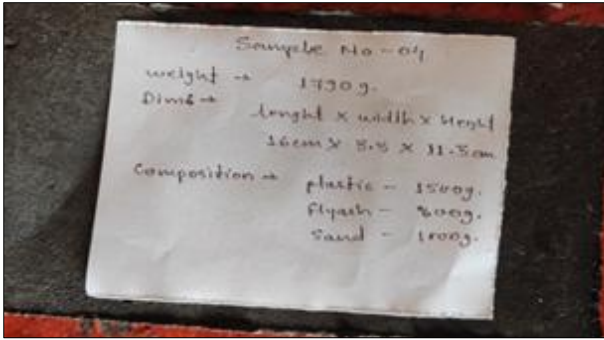 Sample No - 04
weight → 1790 g.
Dims →
lenght x width x Height
16cm x 8.5 x 11.5 cm
Composition → plastic - 1500g.
Flyash - 600g.
Sand - 1000g.